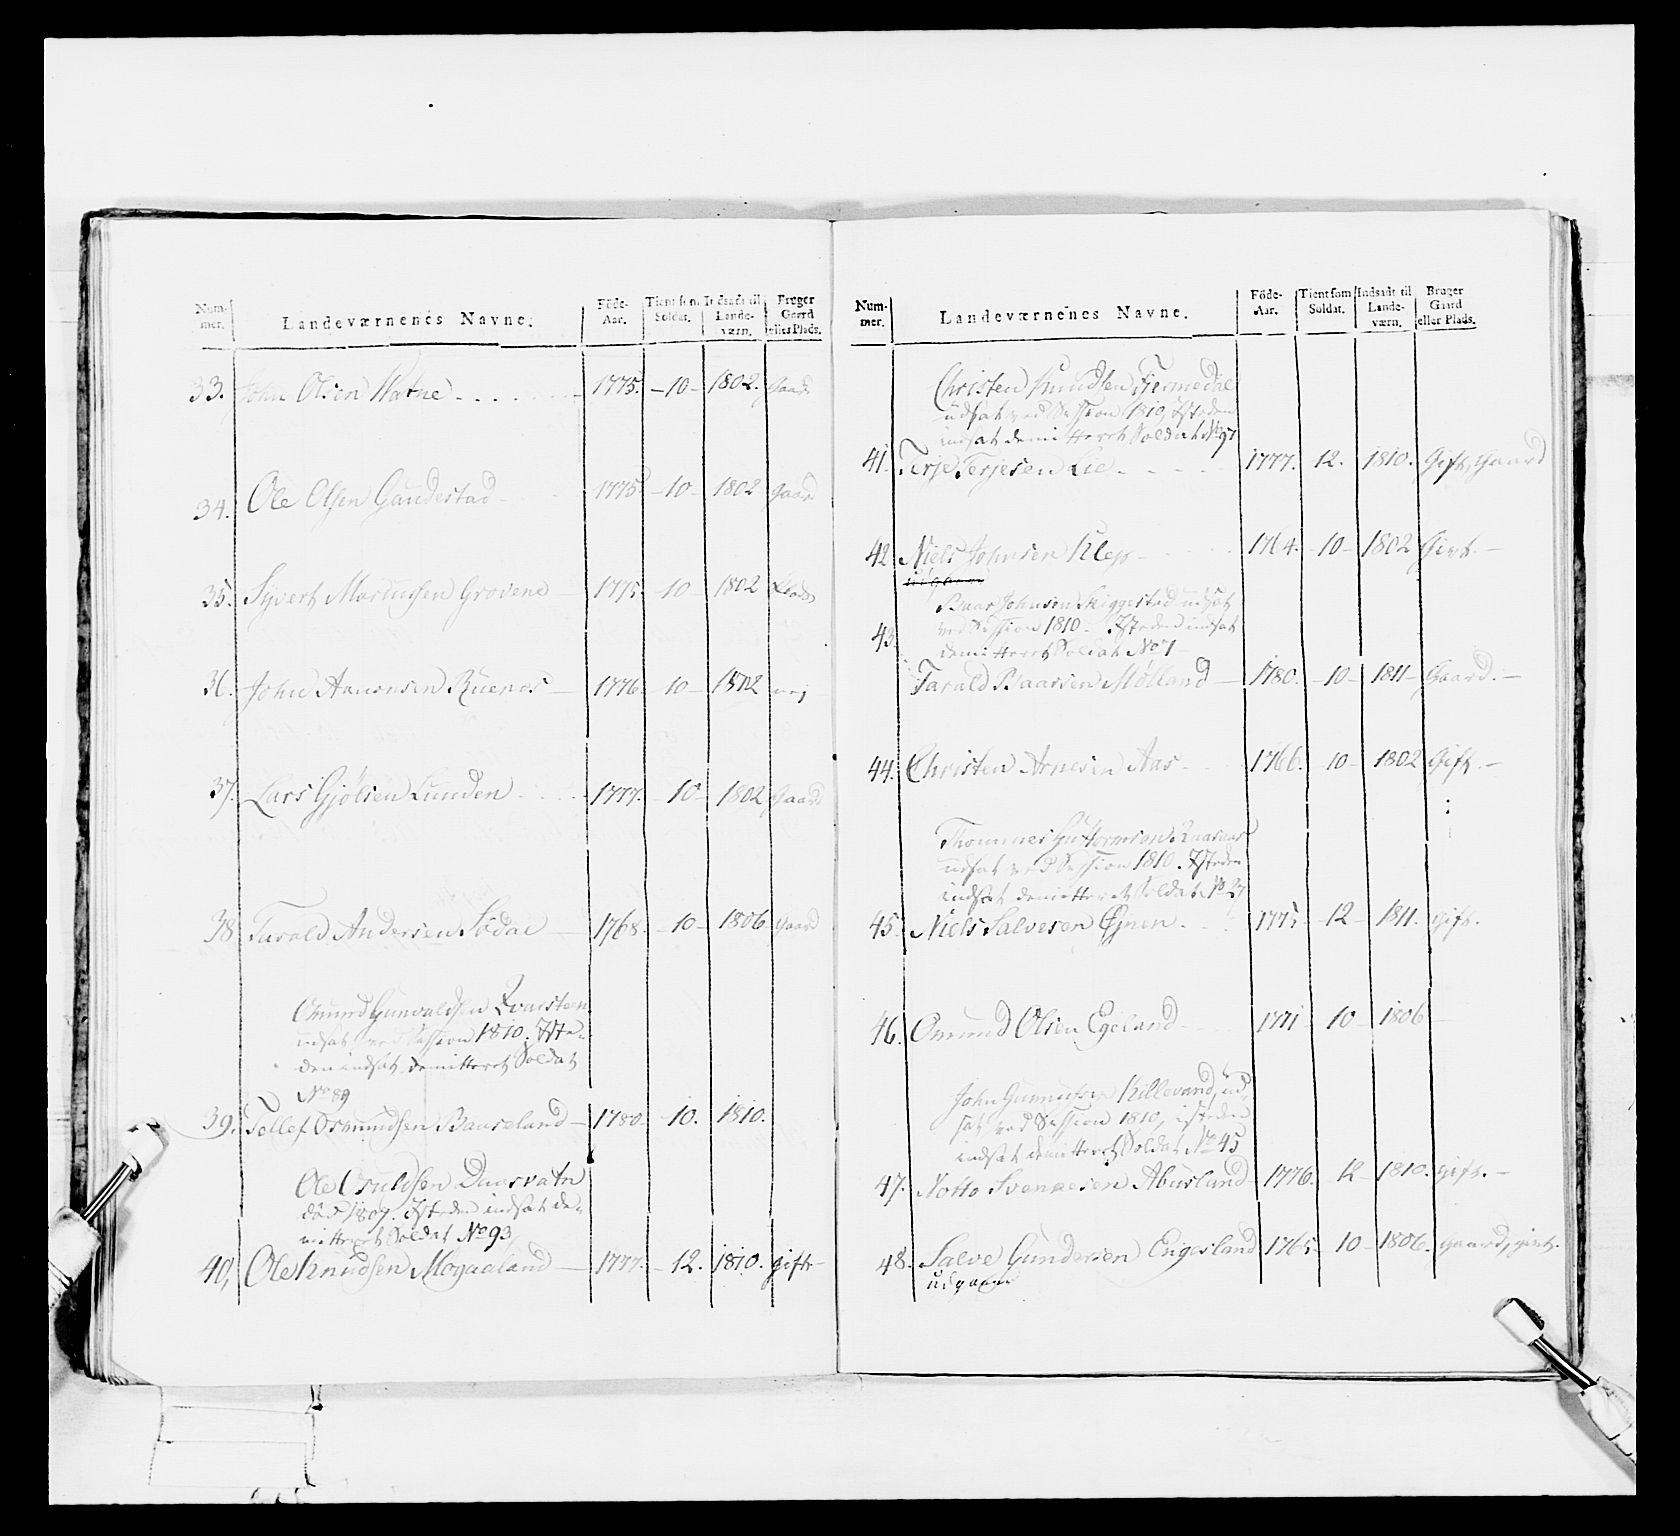 Num-mer. Landeværnenes Navne. Föde-Aar. Tient som Soldat. Indsadt til Lande-værn. Bruger Gaard eller Plads.
33. John Olsen Watne 1775. -10- 1802. Gaard
34. Ole Olsen Gaudestad 1775 -10- 1802 Gaard
35. Syvert Grovene 1775. 10- 1802
36. John Aanonsen 1776. 10- 1802 nej
37. Lars Gjølsen Lunden 1777. 10- 1802 Gaard
38 Tarald Andersen Sødal 1768. 10- 1806 Gaard
Omund Gunvaldsen
udsat ved Session 1810. Iste-
den indsat demitteret Soldat
No 89
39. Tellef Osmundsen 1780. 10. 1810.
Ole Osuldsen Daasvatn
død 1807. Isteden indsat de-
mitteret Soldat No 93
40, Ole Knudsen Mogaaland 1777. 12. 1810. gift-
Num-mer. Landeværnenes Navne. Föde-Aar. Tient som Soldat. Indsadt til Lande-værn. Bruger Gaard eller Plads.
Christen Knudsen Fjermedal
udsat ved Session 1810, Isteden
indsat demitteret Soldat No 97
41. Terje Terjesen Lie 1777. 12. 1810. Gift, Gaard
42 Niels Johnsen Klep 1764. 10- 1802 Givt.-
Baar Johnsen Skiggestad udsat
ved Session 1810. Isteden indsat
43. demitteret Soldat No 7
Tarald Baarsen Mølland 1780. -10- 1811- Gaard.-
44. Christen Arnesen Aas 1766. 10- 1802 Gift.-
Thommes Guttormsen
udsat ved Session 1810. Isteden
indsat demitteret Soldat No 27
45. Niels Salvesen Øjnen 1775 12- 1811. gift.
46. Omund Olsen Egeland 1771 10- 1806
John Gunnufsen Killevand, ud-
sat ved Session 1810, isteden
indsat demitteret Soldat No 45
47. Notto Svennesen Abusland 1776. 12- 1810. gift.-
48. Salve Gundersen Engesland 1765. 10- 1806. gaard, givt.
udgaaer